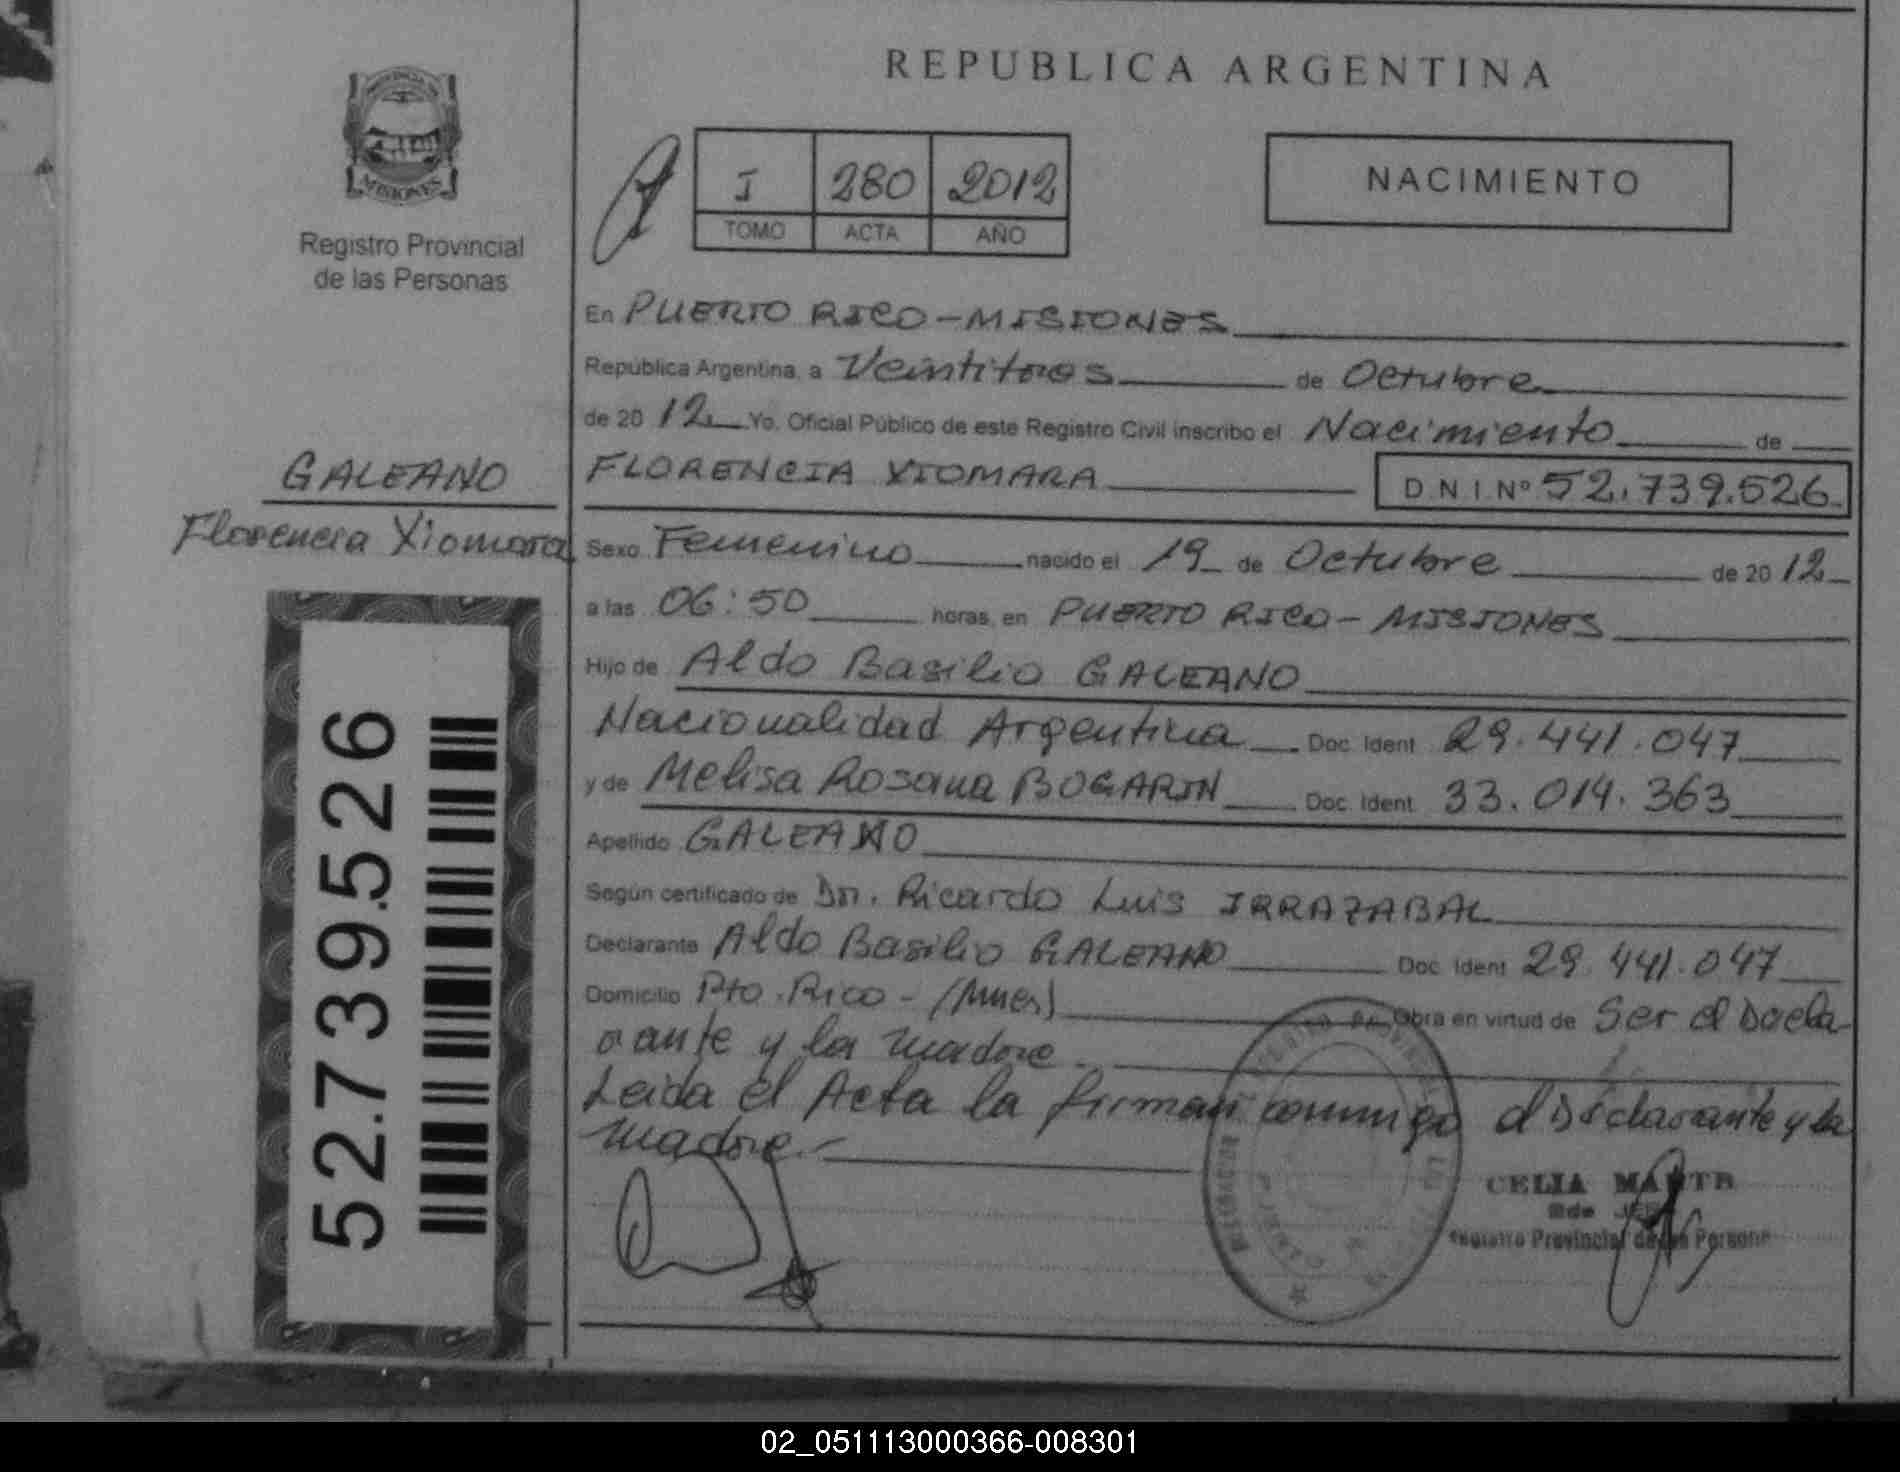 PROVINCIA DE
MISIONES
Registro Provincial
de las Personas
GALEANO
Florencia Xiomara
52.739.526
REPUBLICA ARGENTINA
I 280 2012
TOMO ACTA AÑO
NACIMIENTO
En PUERTO RICO - MISIONES
República Argentina, a Veintitres de Octubre
de 20 12 Yo, Oficial Público de este Registro Civil inscribo el Nacimiento de
FLORENCIA XIOMARA D N I Nº 52.739.526
Sexo Femenino nacido el 19 de Octubre de 20 12
a las 06:50 horas, en PUERTO RICO - MISIONES
Hijo de Aldo Basilio GALEANO
Nacionalidad Argentina Doc. Ident. 29.441.047
y de Melisa Rosana BOGARIN Doc. Ident. 33.014.363
Apellido GALEANO
Según certificado de Dr. Ricardo Luis IRRAZABAL
Declarante Aldo Basilio GALEANO Doc. Ident. 29.441.047
Domicilio Pto. Rico - (Mnes) Obra en virtud de Ser el Decla-
rante y la madre.
Leida el Acta la firman conmigo el Declarante y la
madre.-
CELIA
Registro Provincial de las Personas
02_051113000366-008301